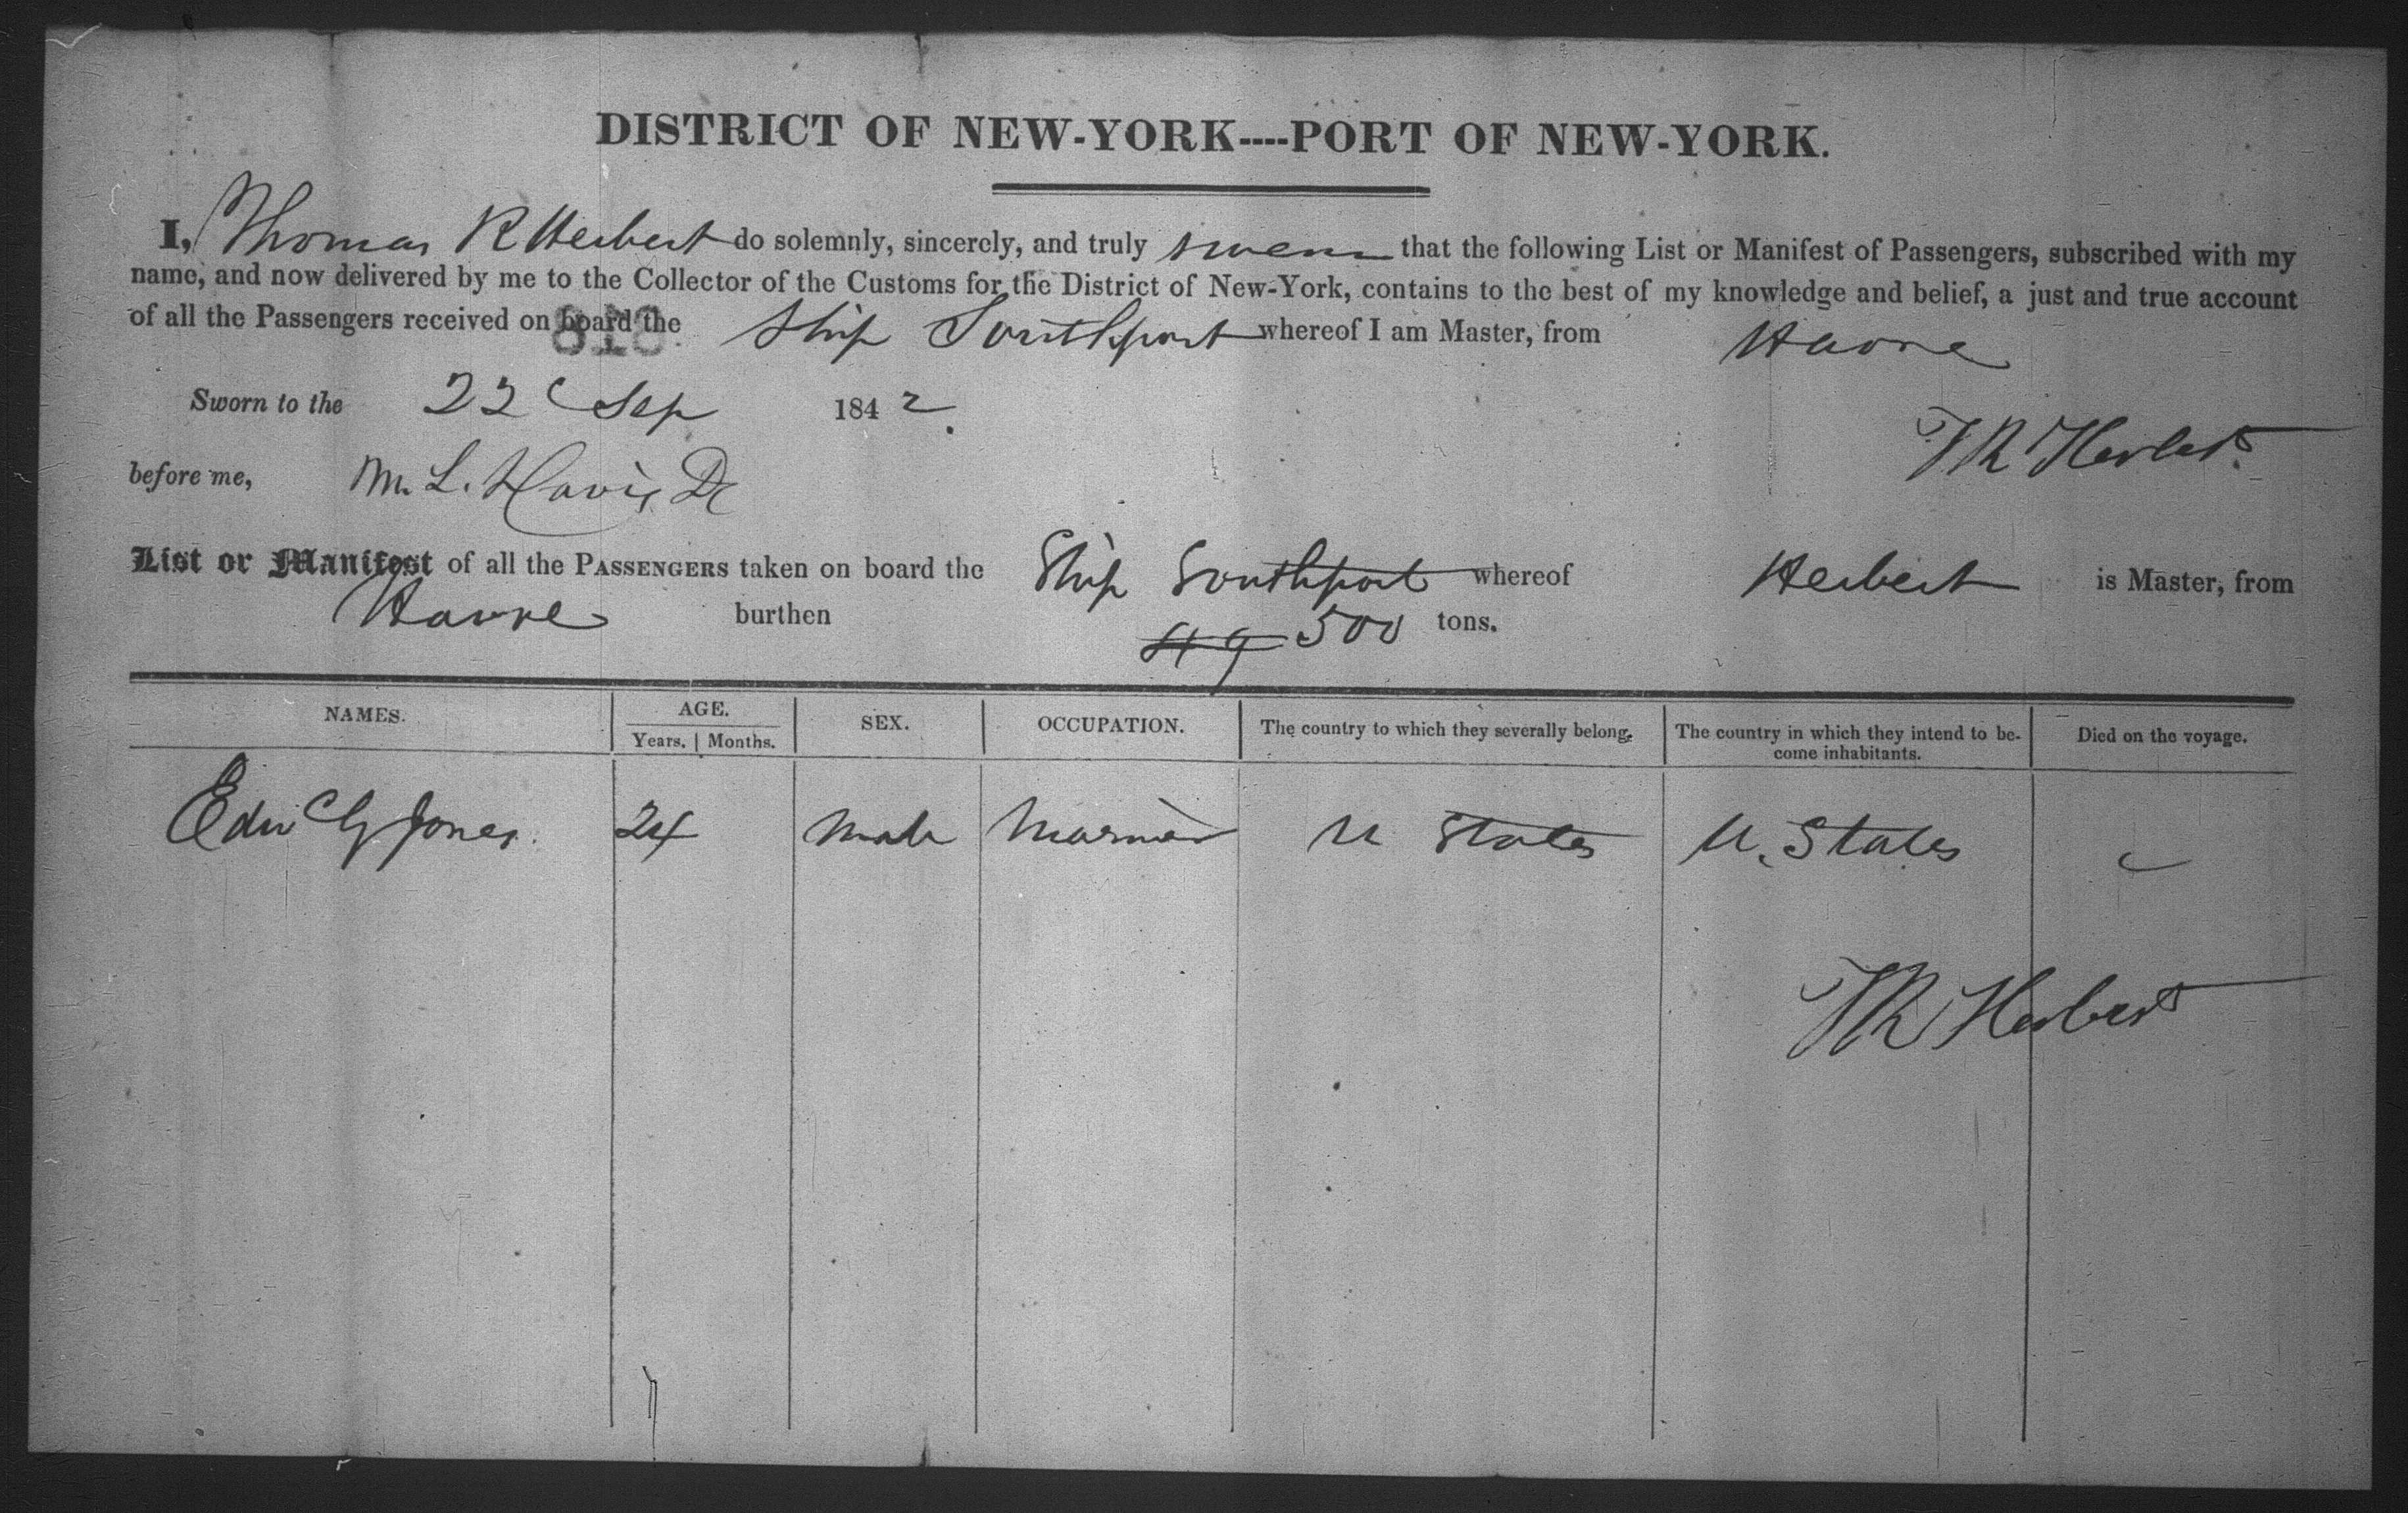 DISTRICT OF NEW-YORK----PORT OF NEW-YORK.
I, Thomas R Herbert do solemnly, sincerely, and truly swear that the following List or Manifest of Passengers, subscribed with my
name, and now delivered by me to the Collector of the Customs for the District of New-York, contains to the best of my knowledge and belief, a just and true account
of all the Passengers received on board the Ship Southport whereof I am Master, from Havre
818
Sworn to the 22 Sep 1842.
T R Herbert
before me, M. L. Davis, DC
List or Manifest of all the PASSENGERS taken on board the Ship Southport whereof Herbert is Master, from
Havre burthen 500 tons.
NAMES. AGE. SEX. OCCUPATION. The country to which they severally belong. The country in which they intend to be-come inhabitants. Died on the voyage.
Years. Months.
Edw G Jones. 24 Male Mariner U States U. States
T R Herbert